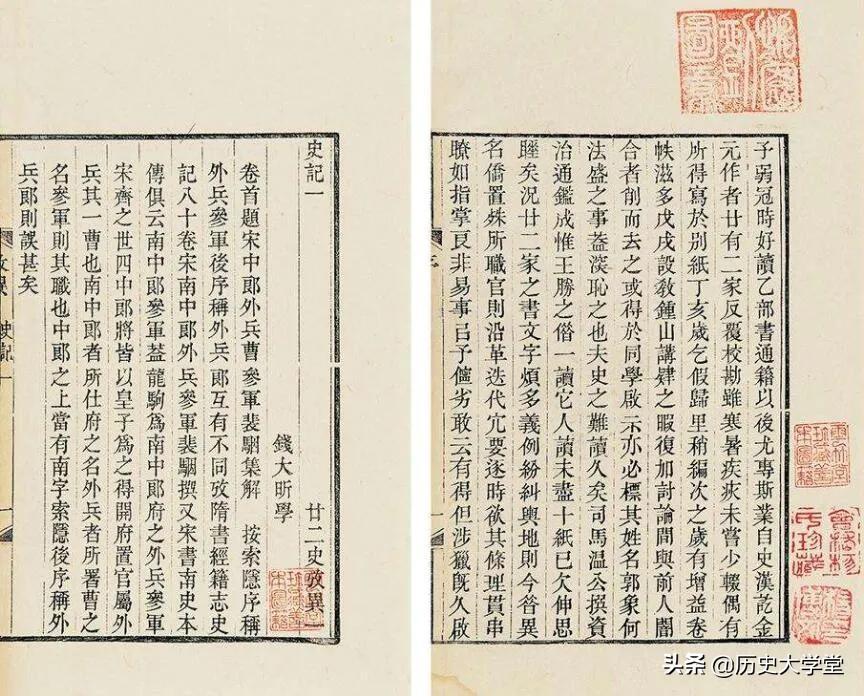 予弱冠時好讀乙部書通籍以後尤專斯業自史漢訖金
元作者廿有二家反覆校勘雖寒暑疾疢未嘗少輟偶有
所得寫於别紙丁亥歲乞假歸里稍編次之歲有增益卷
帙滋多戊戌設教鍾山講肄之暇復加討論間與前人闇
合者削而去之或得於同學啟示亦必標其姓名郭象何
法盛之事蓋深恥之也夫史之難讀久矣司馬温公撰資
治通鑑成惟王勝之借一讀它人讀未盡十紙已欠伸思
睡矣況廿二家之書文字煩多義例紛糾輿地則今昔異
名僑置殊所職官則沿革迭代冗要逐時欲其條理貫串
瞭如指掌良非易事㠯予儜劣敢云有得但涉獵既久啟
史記一 廿二史攷異一
錢大昕學
卷首題宋中郎外兵曹參軍裴駰集解 按索隱序稱
外兵參軍後序稱外兵郎互有不同攷隋書經籍志史
記八十卷宋南中郎外兵參軍裴駰撰又宋書南史本
傳俱云南中郎參軍蓋龍駒爲南中郎府之外兵參軍
宋齊之世四中郎將皆以皇子爲之得開府置官屬外
兵其一曹也南中郎者所仕府之名外兵者所署曹之
名參軍則其職也中郎之上當有南字索隱後序稱外
兵郎則誤甚矣
史記一
头条 @历史大学堂